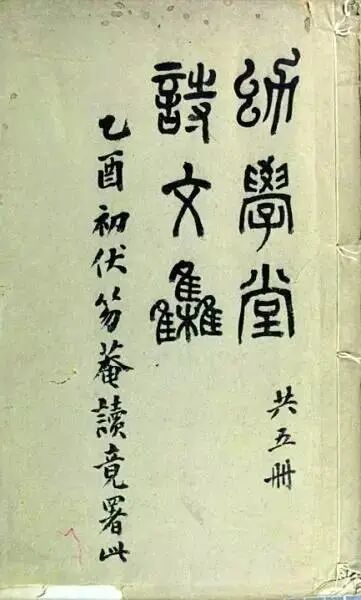 幼學堂
詩文集
共五冊
乙酉初伏笏菴讀竟署此